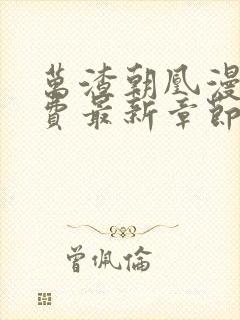 萬渣朝凰漫
費最新章節
曾佩倫